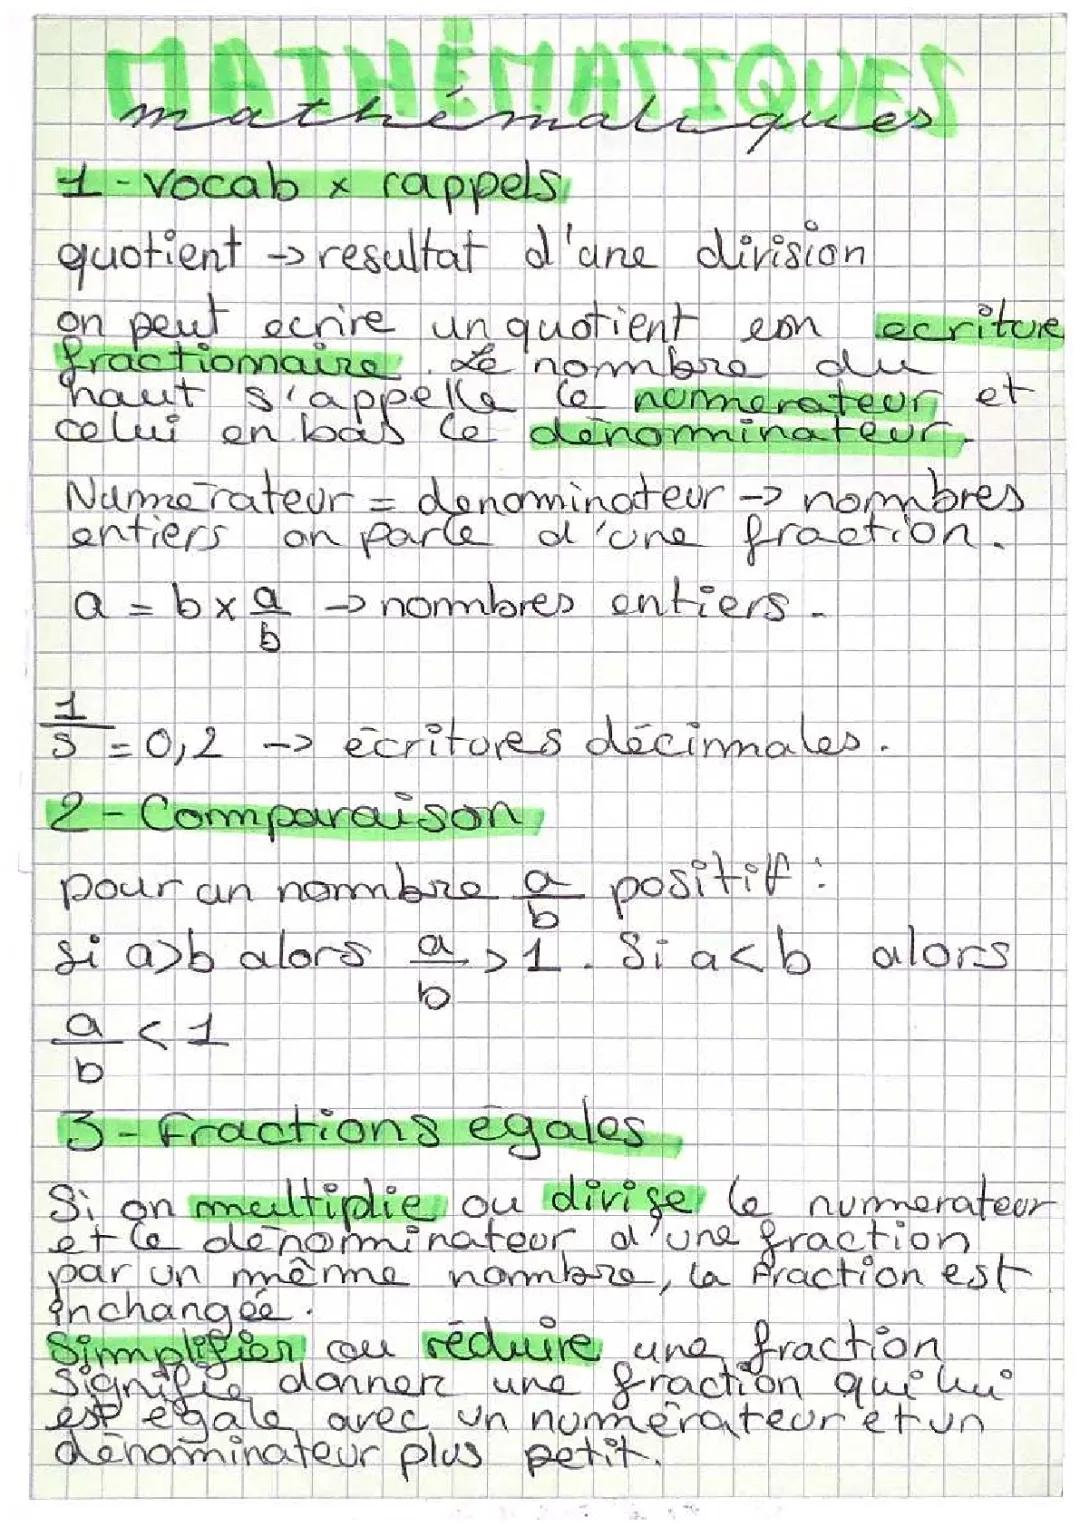 MATHÉMATIQUES
mathématiques
1 - vocab x rappels
quotient -> resultat d'une division
on peut ecrire un quotient en ecriture
fractionnaire. Le nombre du
haut s'appelle le numerateur et
celui en bas le dénominateur.
Numérateur = denominateur -> nombres
entiers on parle d'une fraction.
a = b x a/b -> nombres entiers.
1/5 = 0,2 -> écritures décimales.
2 - Comparaison
pour un nombre a/b positif :
Si a>b alors a/b > 1. Si a<b alors
a/b < 1
3 - Fractions égales
Si on multiplie ou divise le numerateur
et le dénominateur d'une fraction
par un même nombre, la fraction est
inchangée.
Simplifier ou réduire une fraction
signifie donner une fraction qui lui
est égale avec un numérateur et un
dénominateur plus petit.